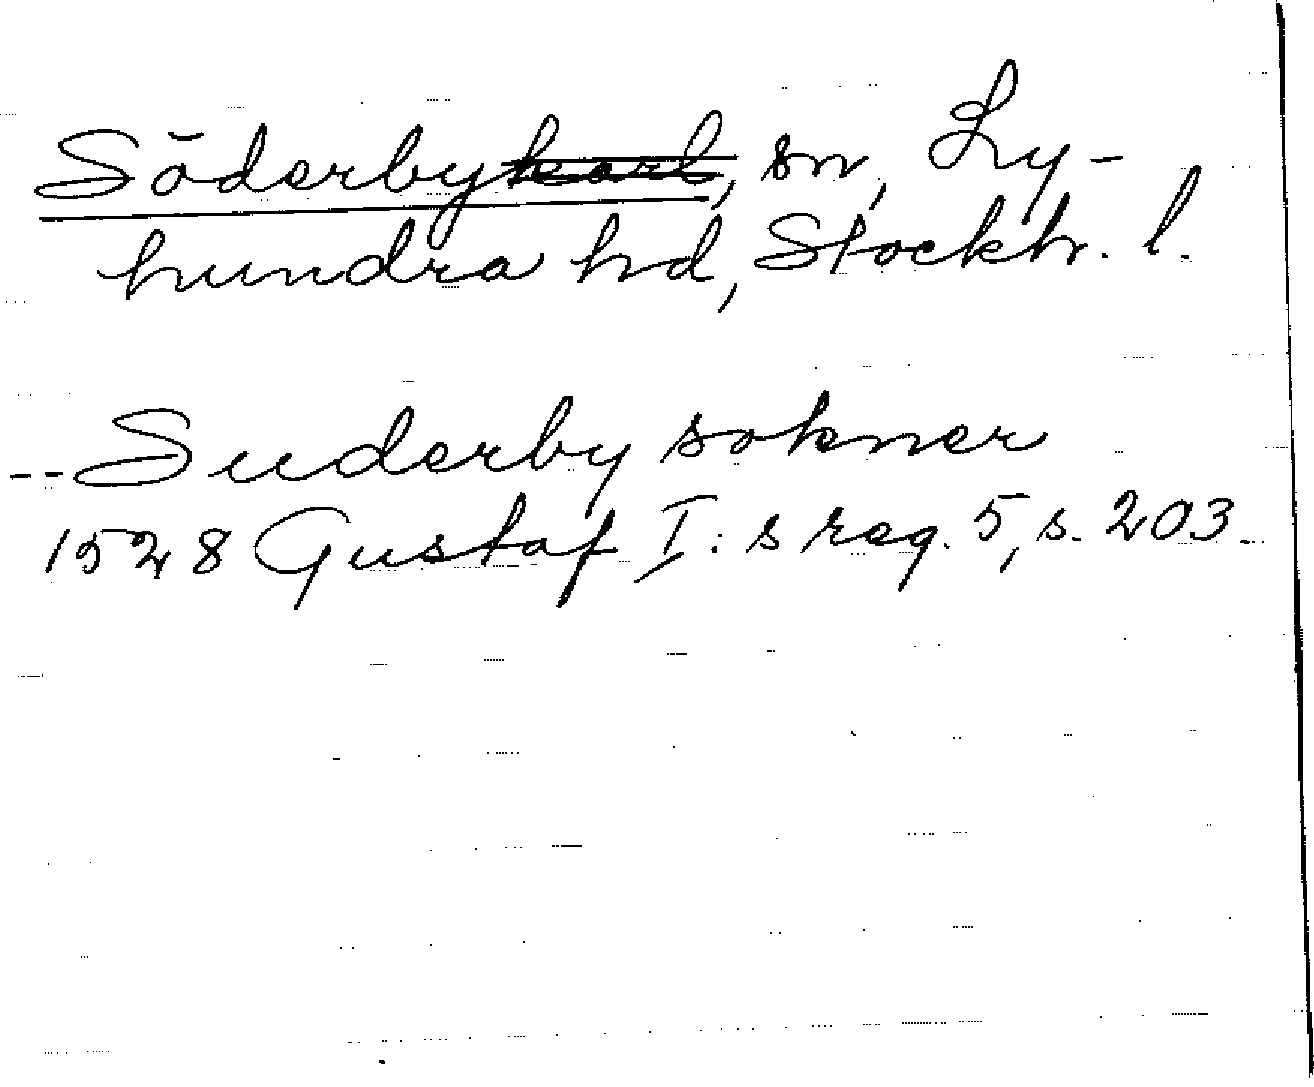 Söderbykarl, sn, Ly-
hundra hd, Stockh. l.
-- Suderby sokner
1528 Gustaf I:s reg. 5, s. 203.